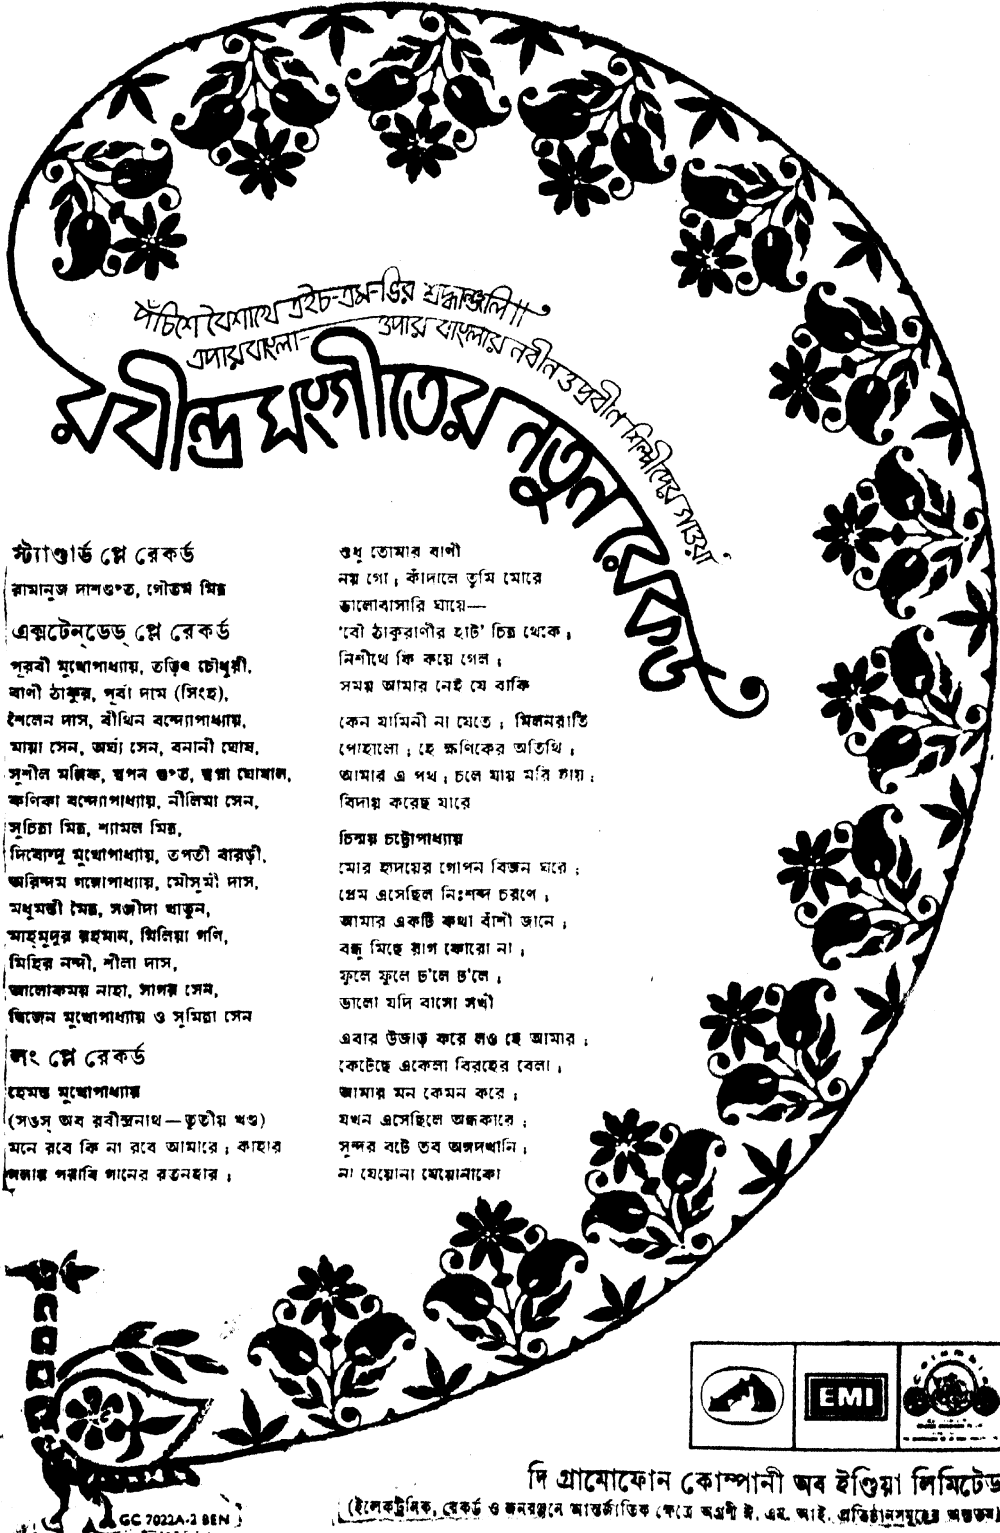 পঁচিশে বৈশাখে এইচ-এম-ভির শ্রদ্ধাঞ্জলি॥
এপার বাংলা-ওপার বাংলার নবীন ও প্রবীণ শিল্পীদের গাওয়া
রবীন্দ্র সংগীতের নতুন রেকর্ড
স্ট্যাণ্ডার্ড প্লে রেকর্ড
রামানুজ দাশগুপ্ত, গৌতম মিত্র
এক্সটেন্ডেড্ প্লে রেকর্ড
পূরবী মুখোপাধ্যায়, তড়িৎ চৌধুরী,
বাণী ঠাকুর, পূর্বা দাম (সিংহ),
শৈলেন দাস, বীথিন বন্দ্যোপাধ্যায়,
মায়া সেন, অর্ঘ্য সেন, বনানী ঘোষ,
সুশীল মল্লিক, স্বপন গুপ্ত, স্বপ্না ঘোষাল,
কণিকা বন্দ্যোপাধ্যায়, নীলিমা সেন,
সুচিত্রা মিত্র, শ্যামল মিত্র,
দিব্যেন্দু মুখোপাধ্যায়, তপতী বারড়ী,
অরিন্দম গঙ্গোপাধ্যায়, মৌসুমী দাস,
মধুমন্তী মৈত্র, সঞ্জীদা খাতুন,
মাহ্‌মুদুর রহমান, মিলিয়া গণি,
মিহির নন্দী, শীলা দাস,
আলোকময় নাহা, সাগর সেন,
দ্বিজেন মুখোপাধ্যায় ও সুমিত্রা সেন
লং প্লে রেকর্ড
হেমন্ত মুখোপাধ্যায়
(সঙস্ অব রবীন্দ্রনাথ—তৃতীয় খণ্ড)
মনে রবে কি না রবে আমারে ; কাহার
গলায় পরাবি গানের রতনহার ;
শুধু তোমার বাণী
নয় গো ; কাঁদালে তুমি মোরে
ভালোবাসারি ঘায়ে—
'বৌ ঠাকুরাণীর হাট' চিত্র থেকে ;
নিশীথে কি কয়ে গেল ;
সময় আমার নেই যে বাকি
কেন যামিনী না যেতে ; মিলনরাতি
পোহালো ; হে ক্ষণিকের অতিথি ;
আমার এ পথ ; চলে যায় মরি হায় ;
বিদায় করেছ যারে
চিন্ময় চট্টোপাধ্যায়
মোর হৃদয়ের গোপন বিজন ঘরে ;
প্রেম এসেছিল নিঃশব্দ চরণে ;
আমার একটি কথা বাঁশী জানে ;
বন্ধু মিছে রাগ কোরো না ;
ফুলে ফুলে ঢ'লে ঢ'লে ;
ভালো যদি বাসো সখী
এবার উজাড় করে লও হে আমার ;
কেটেছে একেলা বিরহের বেলা ;
আমার মন কেমন করে ;
যখন এসেছিলে অন্ধকারে ;
সুন্দর বটে তব অঙ্গদখানি ;
না যেয়োনা যেয়োনাকো
EMI
দি গ্রামোফোন কোম্পানী অব ইণ্ডিয়া লিমিটেড
(ইলেকট্রনিক, রেকর্ড ও জনরঞ্জনে আন্তর্জাতিক ক্ষেত্রে অগ্রণী ই. এম. আই. প্রতিষ্ঠানসমূহের অন্যতম)
GC 7022A-2 BEN